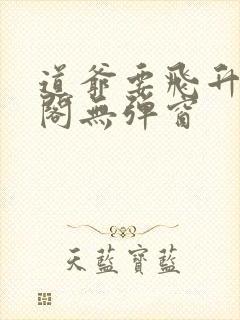 道爺要飛升
閣無彈窗
天藍寶藍